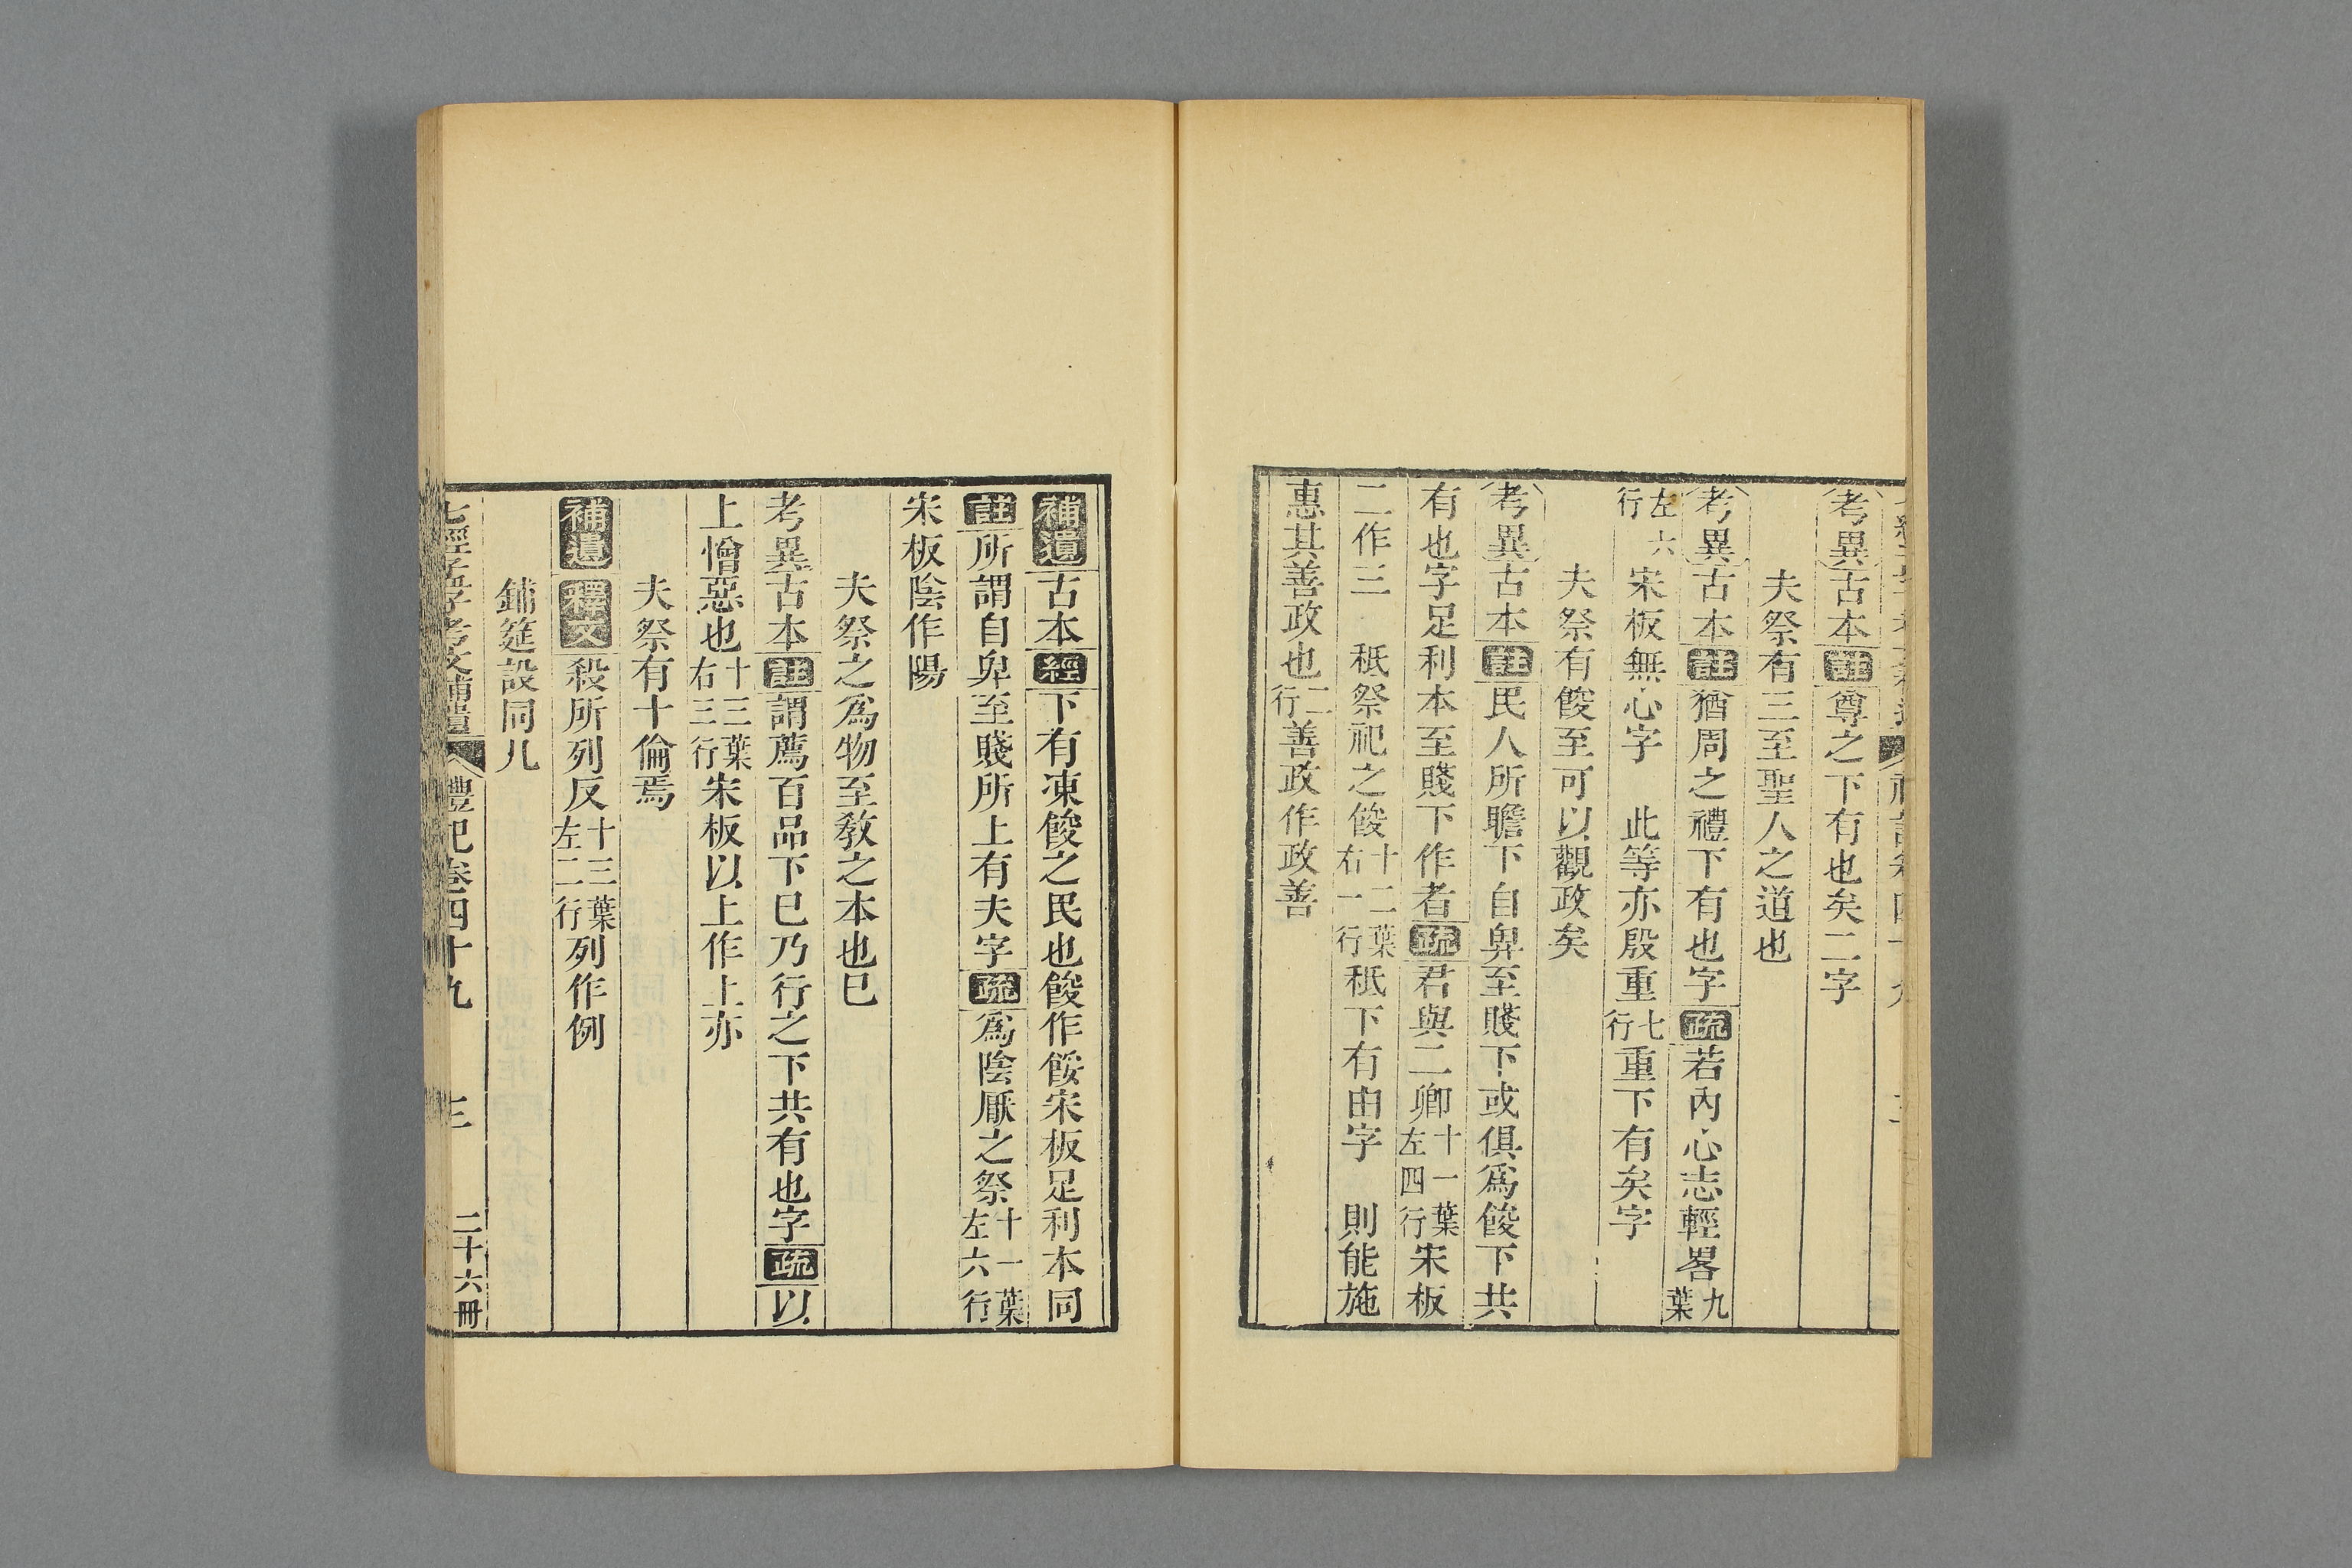 考異古本註尊之下有也矣二字
夫祭有三至聖人之道也
考異古本註猶周之禮下有也字疏若內心志輕畧九葉
左六行宋板無心字　此等亦殷重七行重下有矣字
夫祭有餕至可以觀政矣
考異古本註民人所瞻下自𢌿至賤下或俱爲餕下共
有也字足利本至賤下作者疏君與二卿十一葉左四行宋板
二作三　秖祭祀之餕十二葉右一行秖下有由字　則能施
惠其善政也二行善政作政善
補遺古本經下有凍餕之民也餕作餒宋板足利本同
註所謂自𢌿至賤所上有夫字疏爲陰厭之祭十一葉左六行
宋板陰作陽
夫祭之爲物至敎之本也已
考異古本註謂薦百品下巳乃行之下共有也字疏以
上憎惡也十三葉右三行宋板以上作上亦
夫祭有十倫焉
補遺釋文殺所列反十三葉左二行列作例
鋪筵設同几
七經孟子考文補遺　禮記卷四十九　三　二十六冊